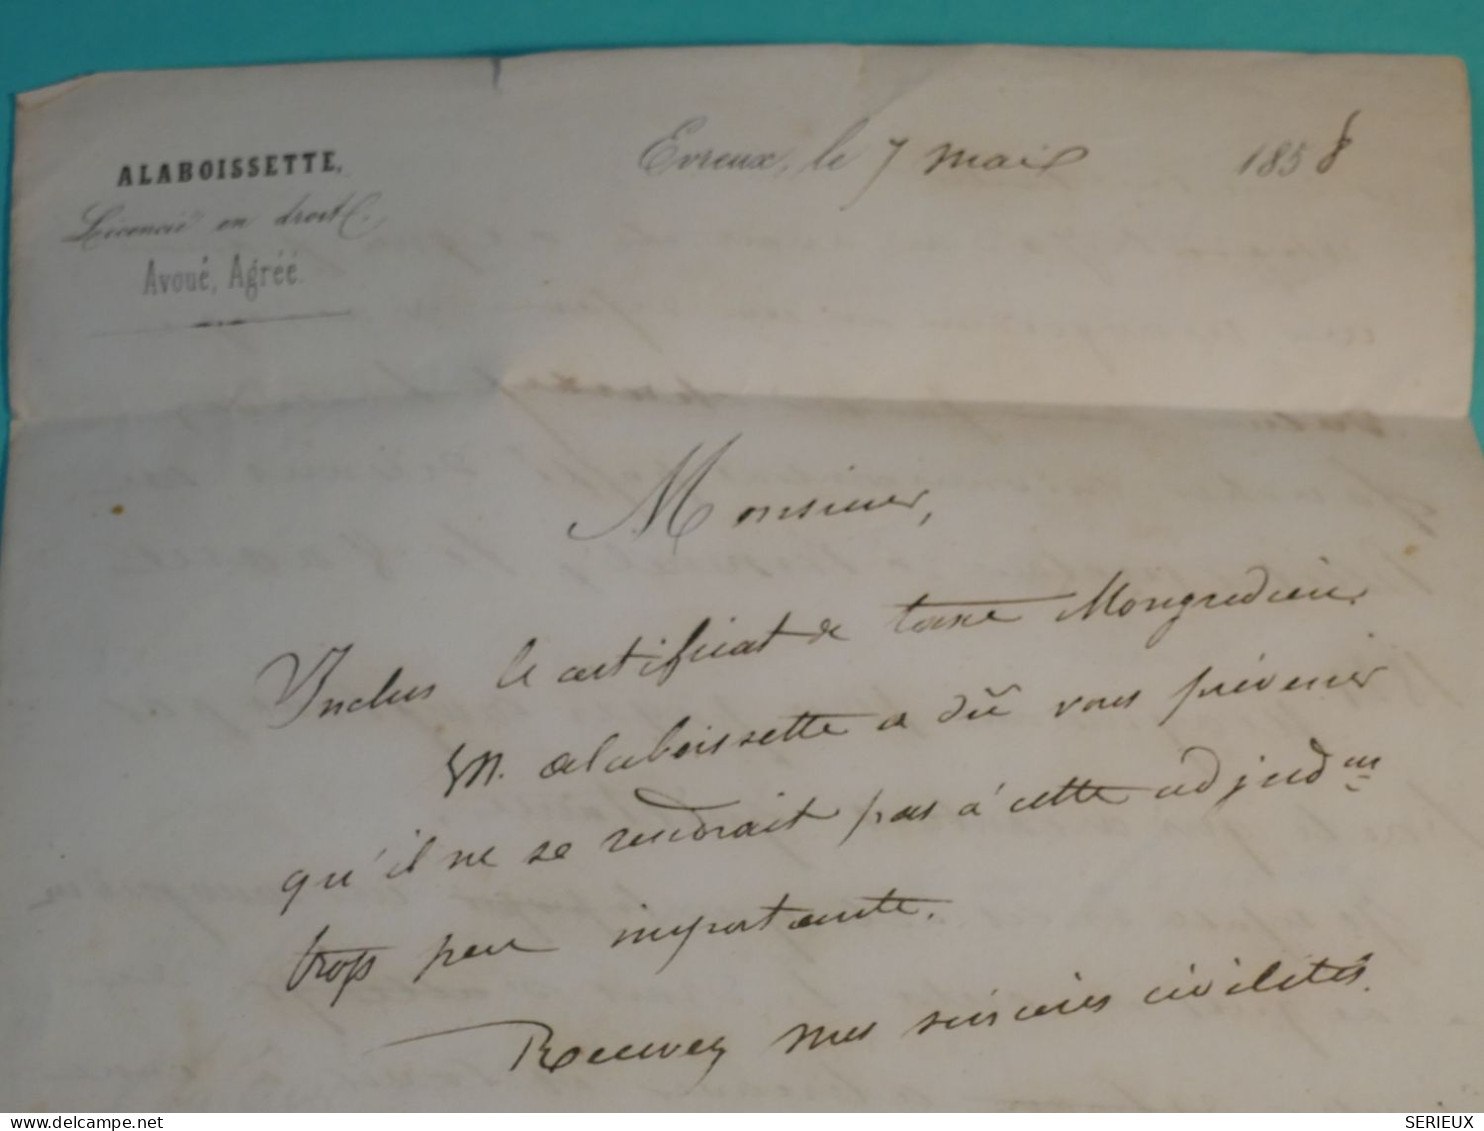 ALABOISSETTE,
Licencié en droit,
Avoué, Agréé.
Evreux, le 7 mai 1858
Monsieur,
Inclus le certificat de taxe Mongredien.
M. Alaboissette a dû vous prévenir
qu'il ne se rendrait pas à cette adjudon
trop peu importante.
Recevez mes sincères civilités.
delcampe.net
SERIEUX